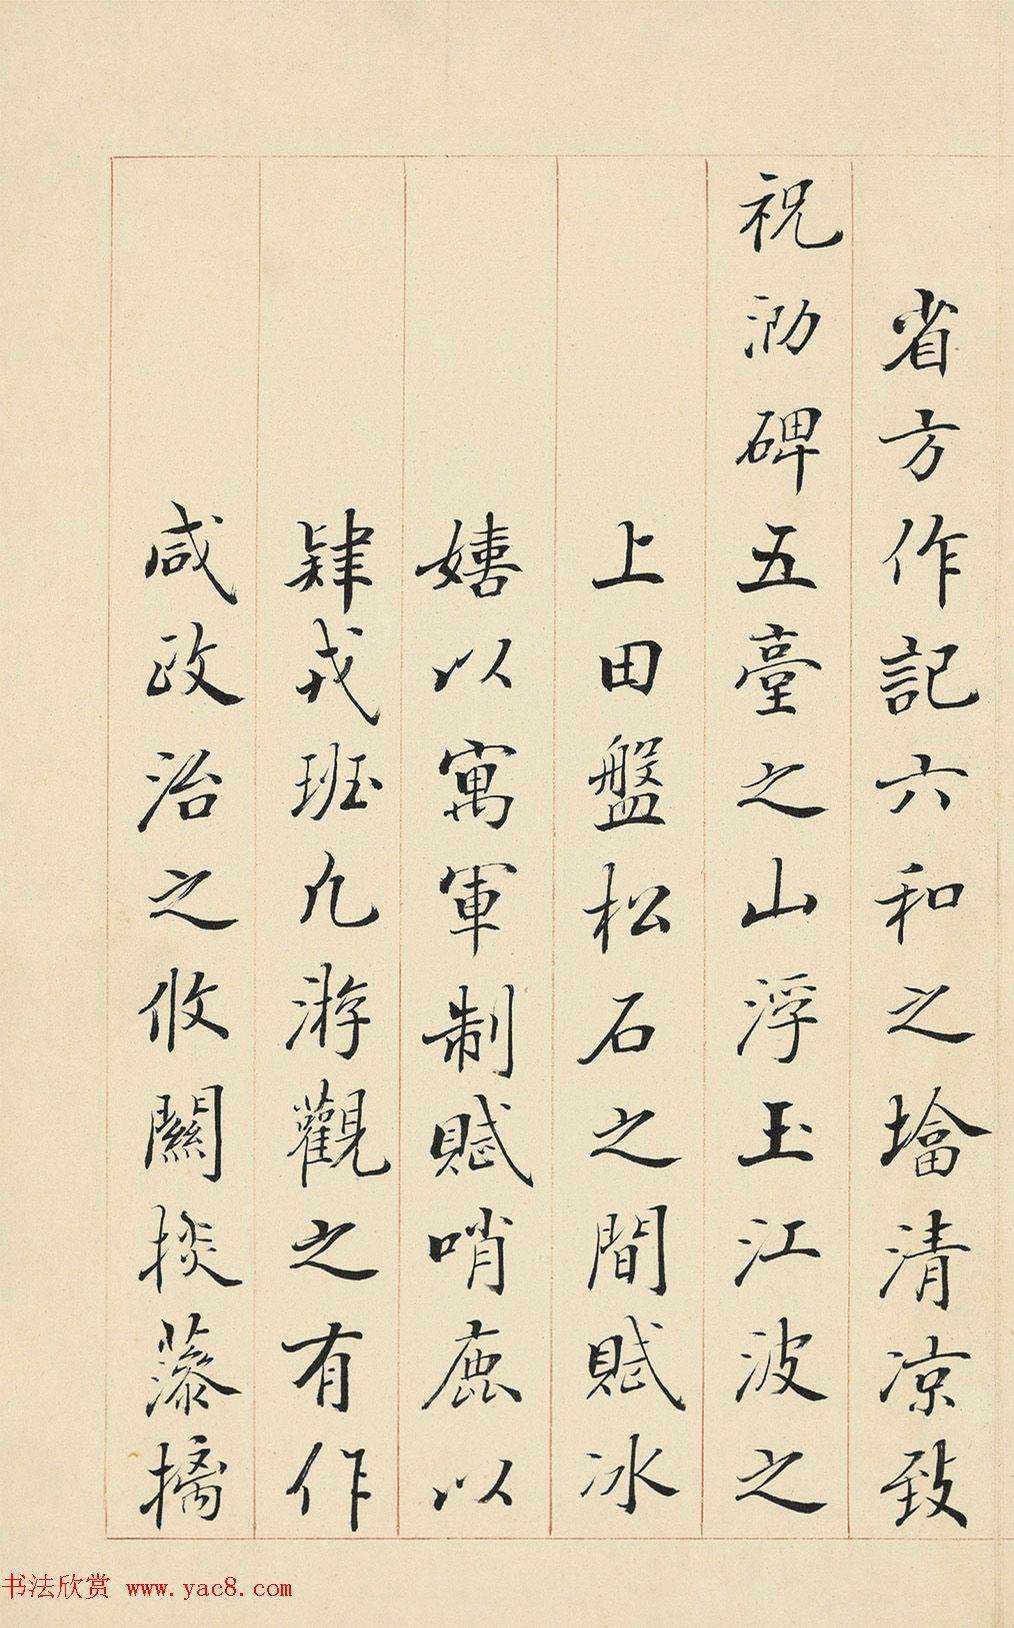 省方作記六和之墖清凉致
祝泐碑五臺之山浮玉江波之
上田盤松石之間賦冰
嬉以寓軍制賦哨鹿以
肄戎班凡游觀之有作
咸政治之攸關掞藻摛
书法欣赏 www.yac8.com